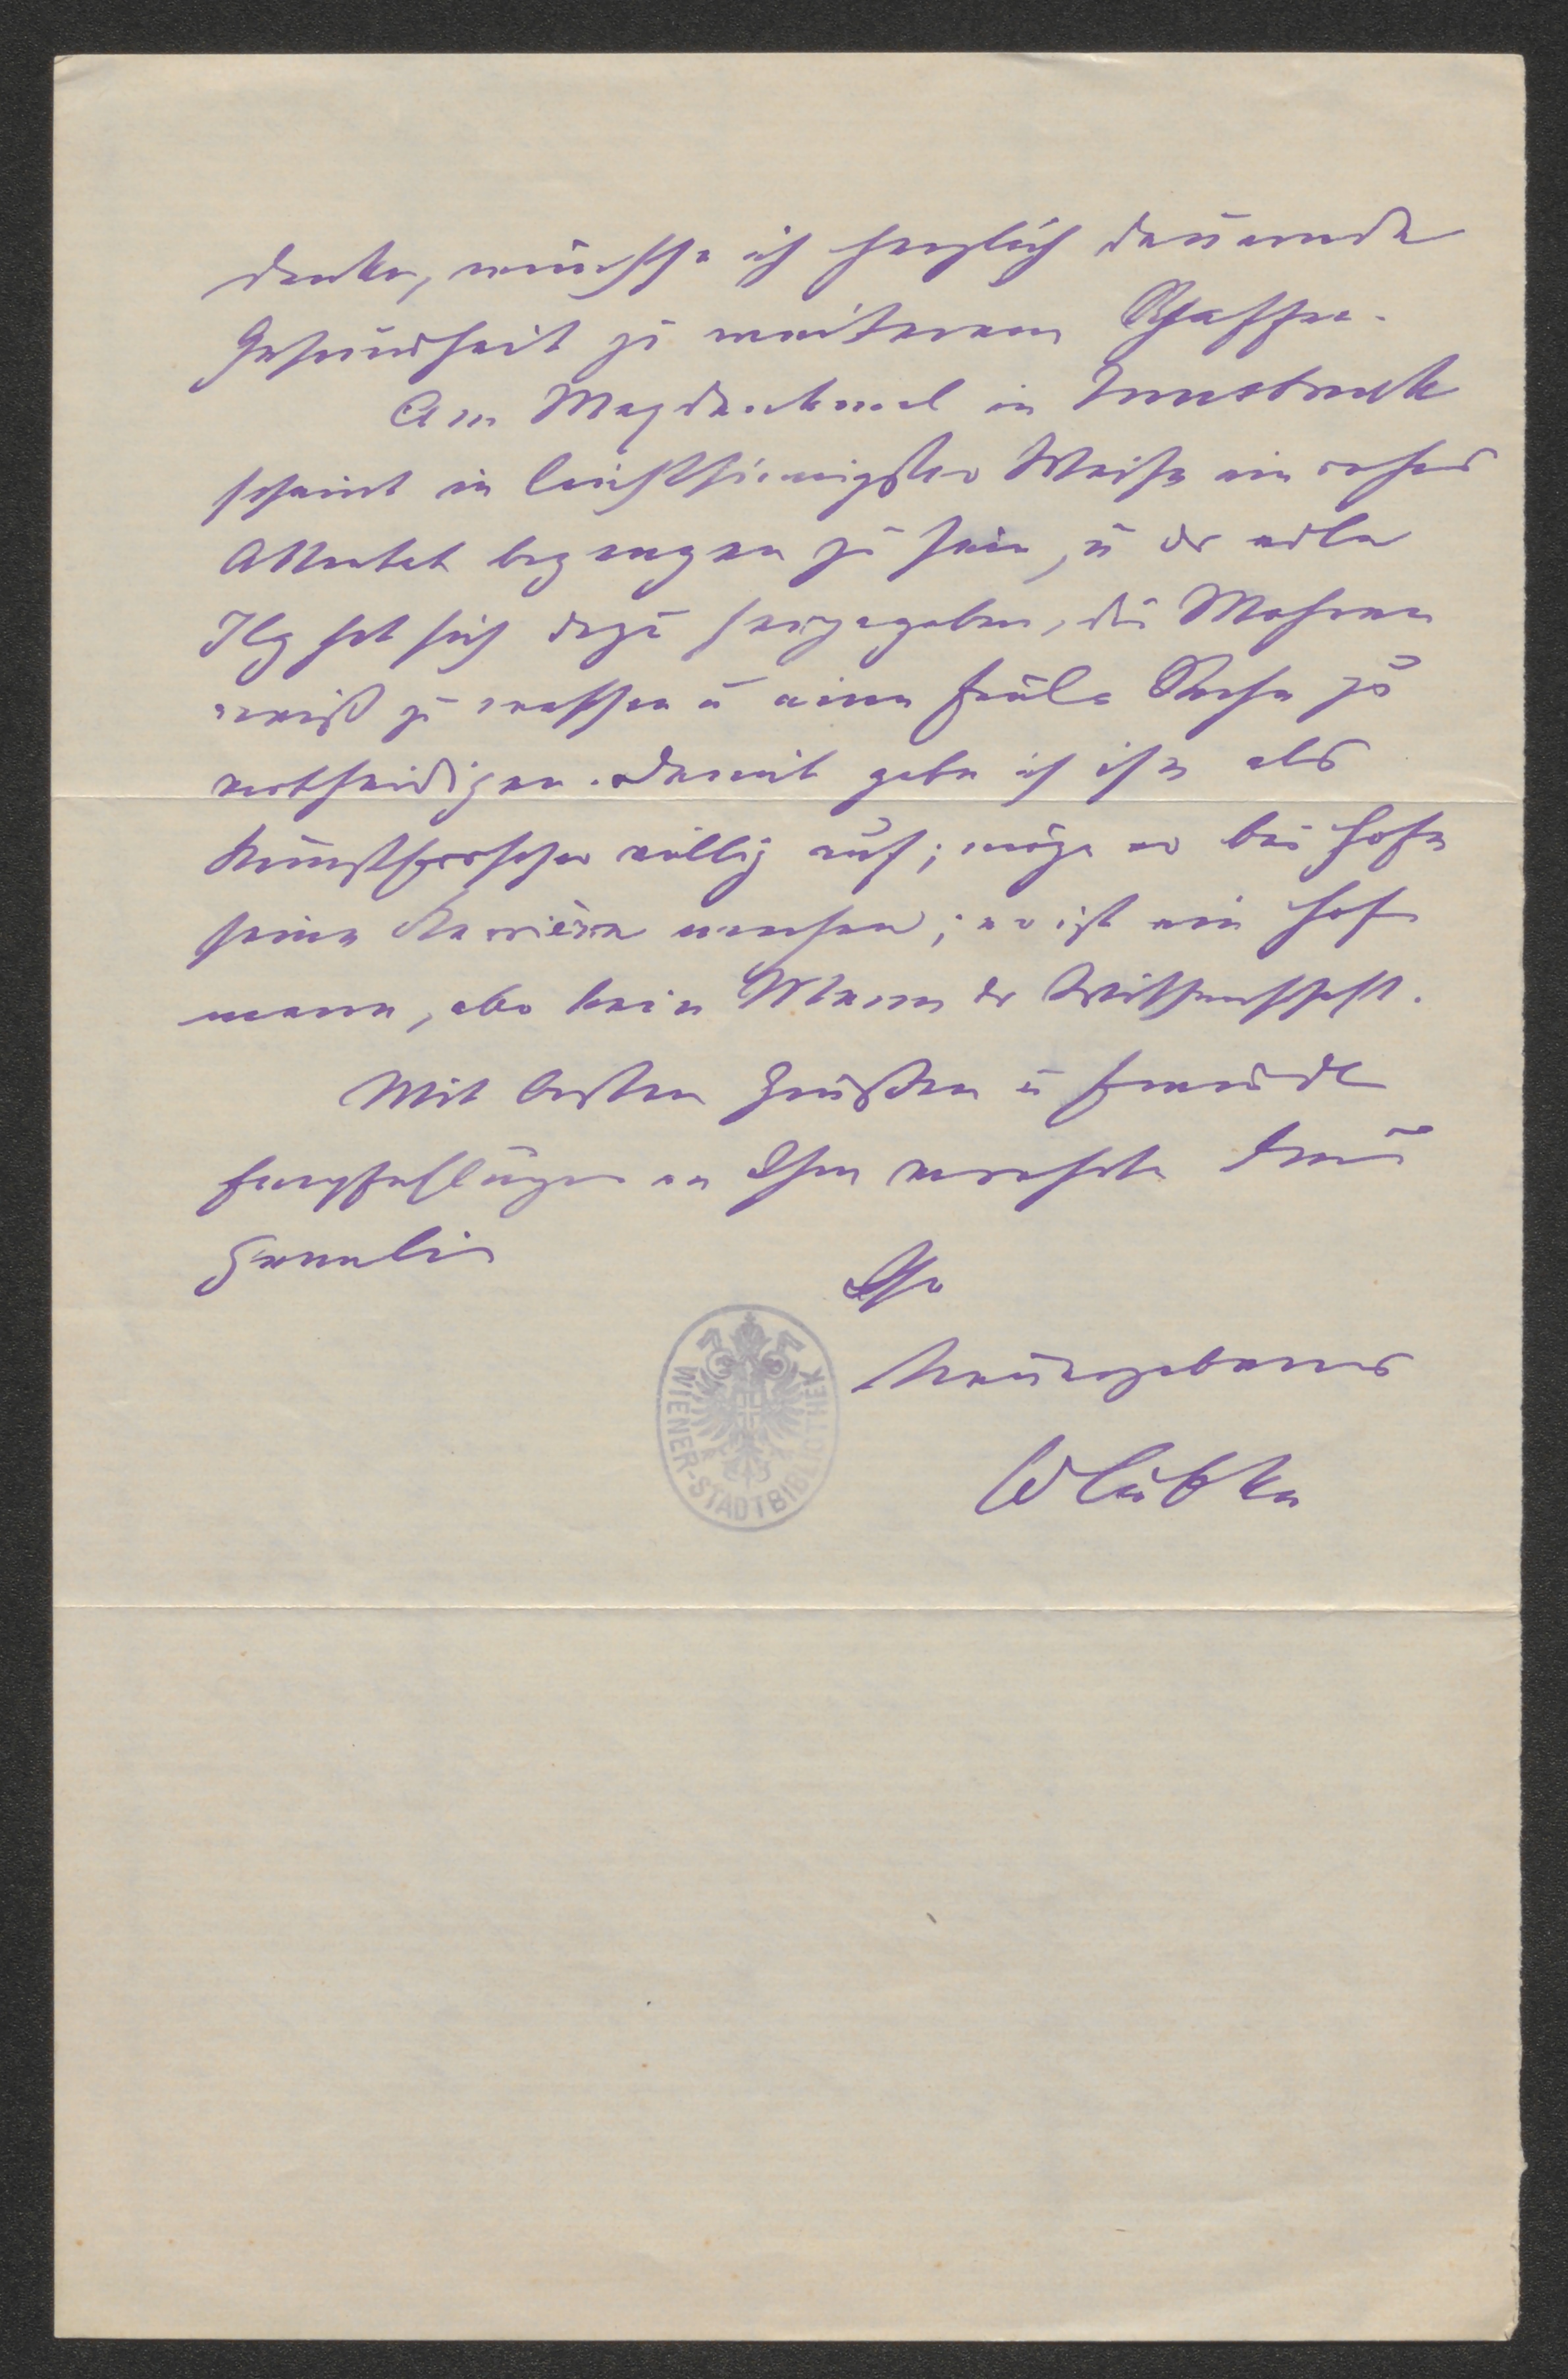 danke, wünsche ich herzlich dauernde
Gesundheit zu weiterem Schaffen.
Am Maxdenkmal in Innsbruck
scheint in leichtsinnigster Weise ein rohes
Attentat begangen zu sein, u der edle
Ilg hat sich dazu hergegeben, die Mohren
weiß zu waschen u eine faule Sache zu
vertheidigen. Damit gebe ich ihn als
Kunstforscher völlig auf; möge er bei Hofe
seine Karrière machen; er ist ein Hof
mann, aber kein Mann der Wissenschaft.
Mit besten Grüßen u freundl
Empfehlungen an Ihre verehrte Frau
Gemalin
Ihr
treuergebener
WLübke
WIENER-STADTBIBLIOTHEK